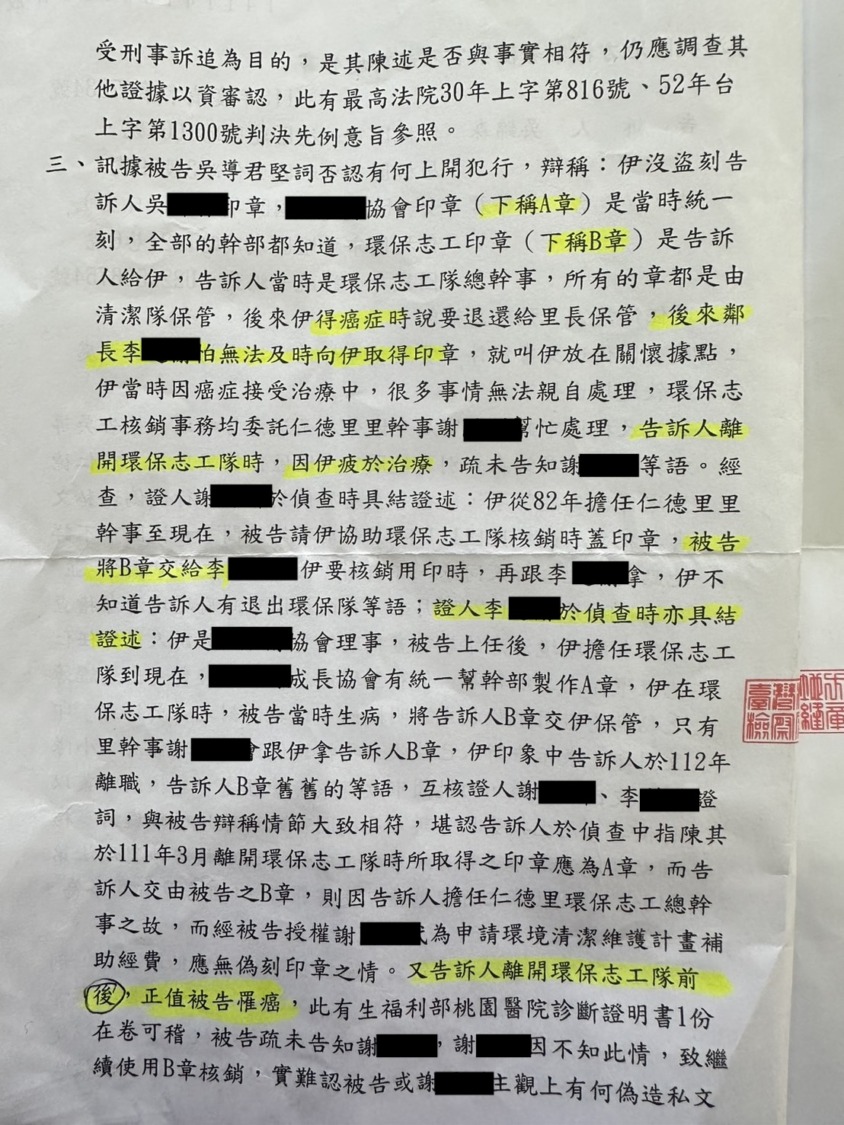 受刑事訴追為目的，是其陳述是否與事實相符，仍應調查其
他證據以資審認，此有最高法院30年上字第816號、52年台
上字第1300號判決先例意旨參照。
三、訊據被告吳導君堅詞否認有何上開犯行，辯稱：伊沒盜刻告
訴人吳 印章， 協會印章（下稱A章）是當時統一
刻，全部的幹部都知道，環保志工印章（下稱B章）是告訴
人給伊，告訴人當時是環保志工隊總幹事，所有的章都是由
清潔隊保管，後來伊得癌症時說要退還給里長保管，後來鄰
長李 怕無法及時向伊取得印章，就叫伊放在關懷據點，
伊當時因癌症接受治療中，很多事情無法親自處理，環保志
工核銷事務均委託仁德里里幹事謝 幫忙處理，告訴人離
開環保志工隊時，因伊疲於治療，疏未告知謝 等語。經
查，證人謝 於偵查時具結證述：伊從82年擔任仁德里里
幹事至現在，被告請伊協助環保志工隊核銷時蓋印章，被告
將B章交給李 伊要核銷用印時，再跟李 拿，伊不
知道告訴人有退出環保隊等語；證人李 於偵查時亦具結
證述：伊是 協會理事，被告上任後，伊擔任環保志工
隊到現在， 成長協會有統一幫幹部製作A章，伊在環
保志工隊時，被告當時生病，將告訴人B章交伊保管，只有
里幹事謝 會跟伊拿告訴人B章，伊印象中告訴人於112年
離職，告訴人B章舊舊的等語，互核證人謝 、李 證
詞，與被告辯稱情節大致相符，堪認告訴人於偵查中指陳其
於111年3月離開環保志工隊時所取得之印章應為A章，而告
訴人交由被告之B章，則因告訴人擔任仁德里環保志工總幹
事之故，而經被告授權謝 代為申請環境清潔維護計畫補
助經費，應無偽刻印章之情。又告訴人離開環保志工隊前
後，正值被告罹癌，此有生福利部桃園醫院診斷證明書1份
在卷可稽，被告疏未告知謝 ，謝 因不知此情，致繼
續使用B章核銷，實難認被告或謝 主觀上有何偽造私文